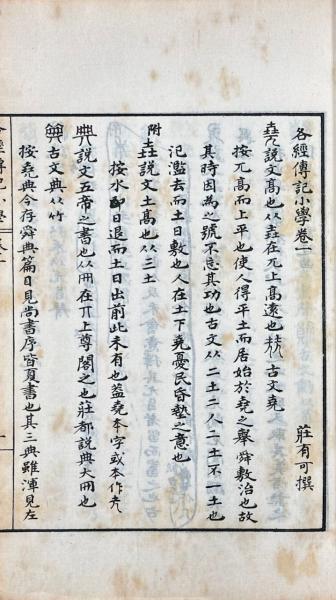 各經傳記小學卷一
莊有可撰
堯說文高也从垚在兀上高遠也 古文堯
按兀高而上平也使人得平土而居始於堯之舉舜敷治也故
其時因為之號不忘其功也古文从二土二人二土不一土也
氾濫去而土日敷也人在土下堯憂民昏墊之意也
附
垚說文土高也从三土
按水卽日退而土日出前此未有也蓋堯本字或本作
典說文五帝之書也从冊在丌上尊閣之也莊都說典大冊也
古文典从竹
按堯典今存舜典篇目見尚書序皆夏書也其三典雖渾見左